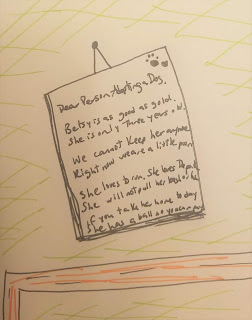 Dear Person Adopting a Dog,
Betsy is as good as gold.
She is only three years old.
We cannot keep her
Right now we are a little poor
She loves to run. She loves
She will not pull her
If you take her home today
She has a ball so you can play